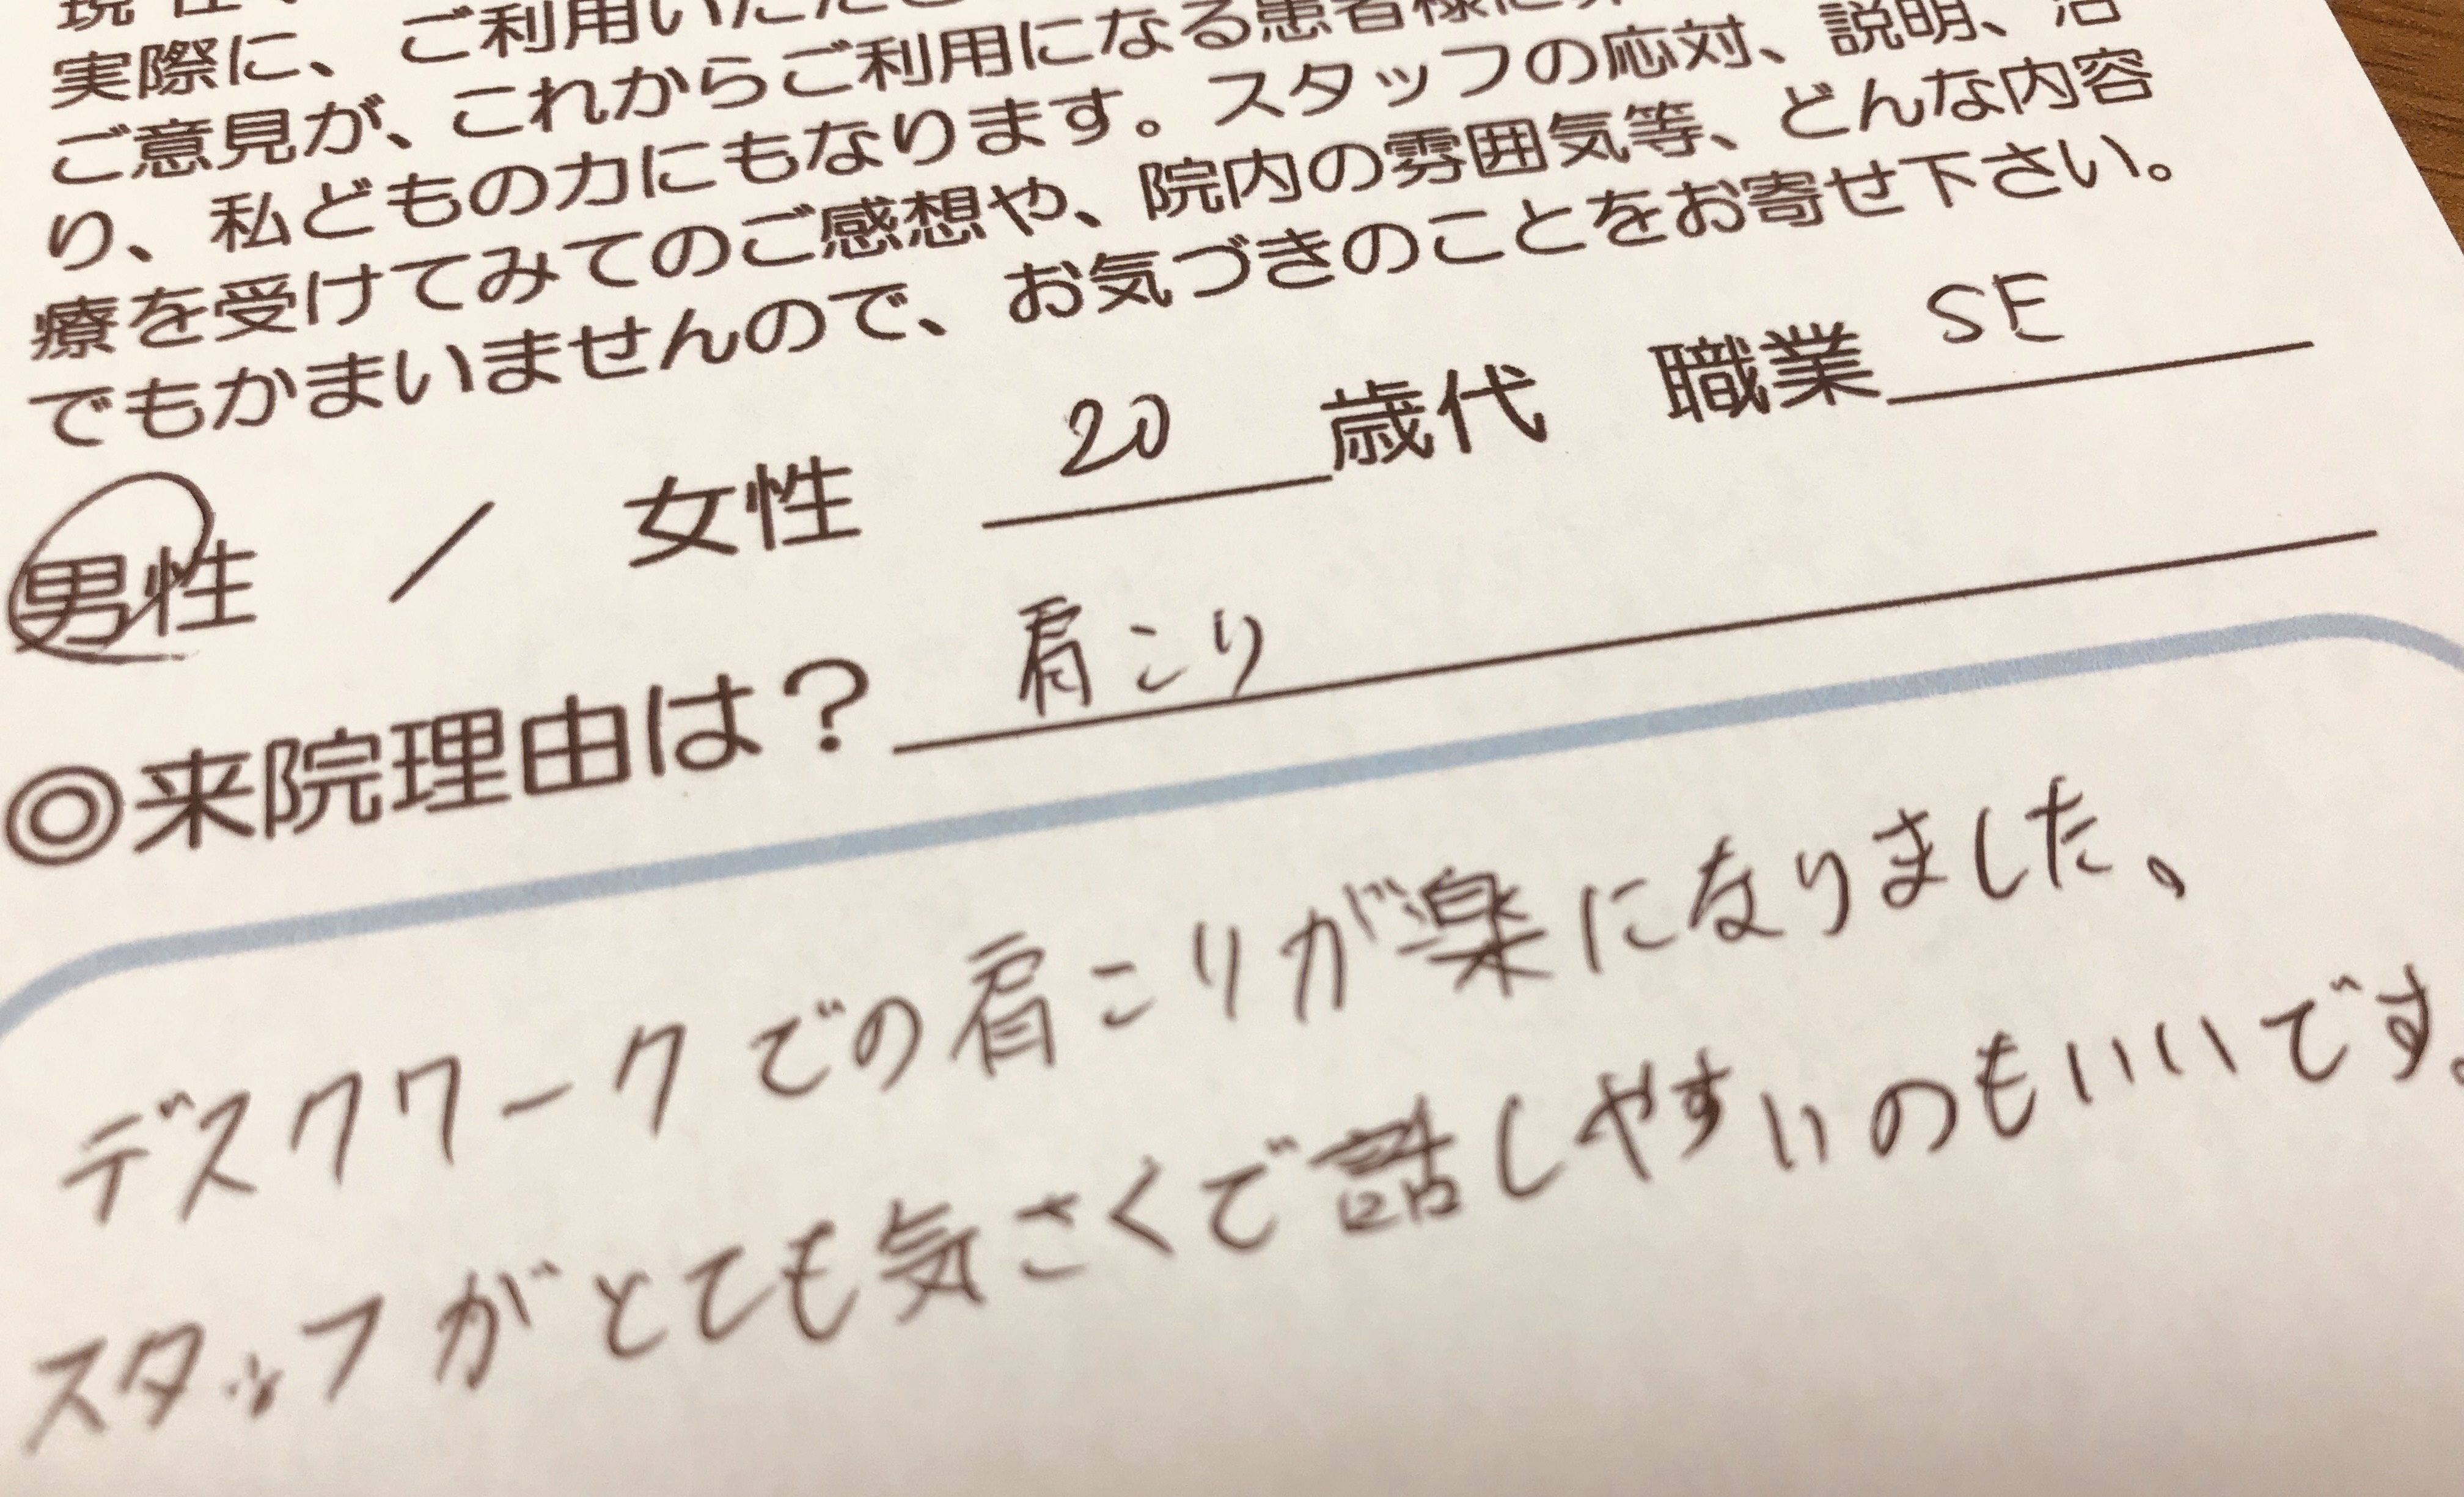 実際に、ご利用いただ
ご意見が、これからご利用になる患者様に
り、私どもの力にもなります。スタッフの応対、説明、治
療を受けてみてのご感想や、院内の雰囲気等、どんな内容
でもかまいませんので、お気づきのことをお寄せ下さい。
男性 / 女性 20歳代 職業 SE
◎来院理由は? 肩こり
デスクワークでの肩こりが楽になりました。
スタッフがとても気さくで話しやすいのもいいです。